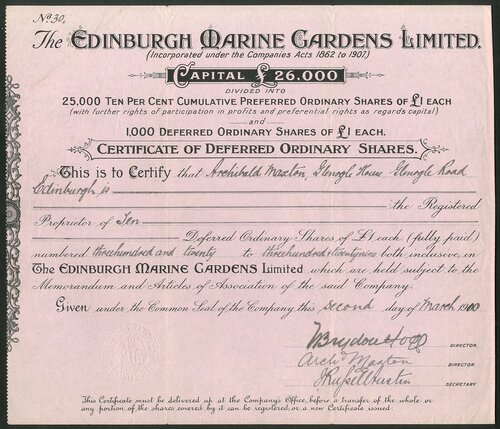 No. 30.
The EDINBURGH MARINE GARDENS LIMITED.
(Incorporated under the Companies Acts 1862 to 1907)
CAPITAL £26,000
DIVIDED INTO
25,000 TEN PER CENT CUMULATIVE PREFERRED ORDINARY SHARES OF £1 EACH
(with further rights of participation in profits and preferential rights as regards capital)
and
1,000 DEFERRED ORDINARY SHARES OF £1 EACH.
CERTIFICATE OF DEFERRED ORDINARY SHARES.
This is to Certify that Archibald Maxton, Glenogle House, Glenogle Road
Edinburgh is
the Registered
Proprietor of Ten
Deferred Ordinary Shares of £1 each (fully paid)
numbered three hundred and twenty to three hundred & twenty nine both inclusive, in
THE EDINBURGH MARINE GARDENS Limited which are held subject to the
Memorandum and Articles of Association of the said Company.
Given under the Common Seal of the Company this second day of March 1910
DIRECTOR.
Archd Maxton
DIRECTOR.
SECRETARY
This Certificate must be delivered up at the Company's Office, before a transfer of the whole or
any portion of the shares covered by it can be registered, or a new Certificate issued.